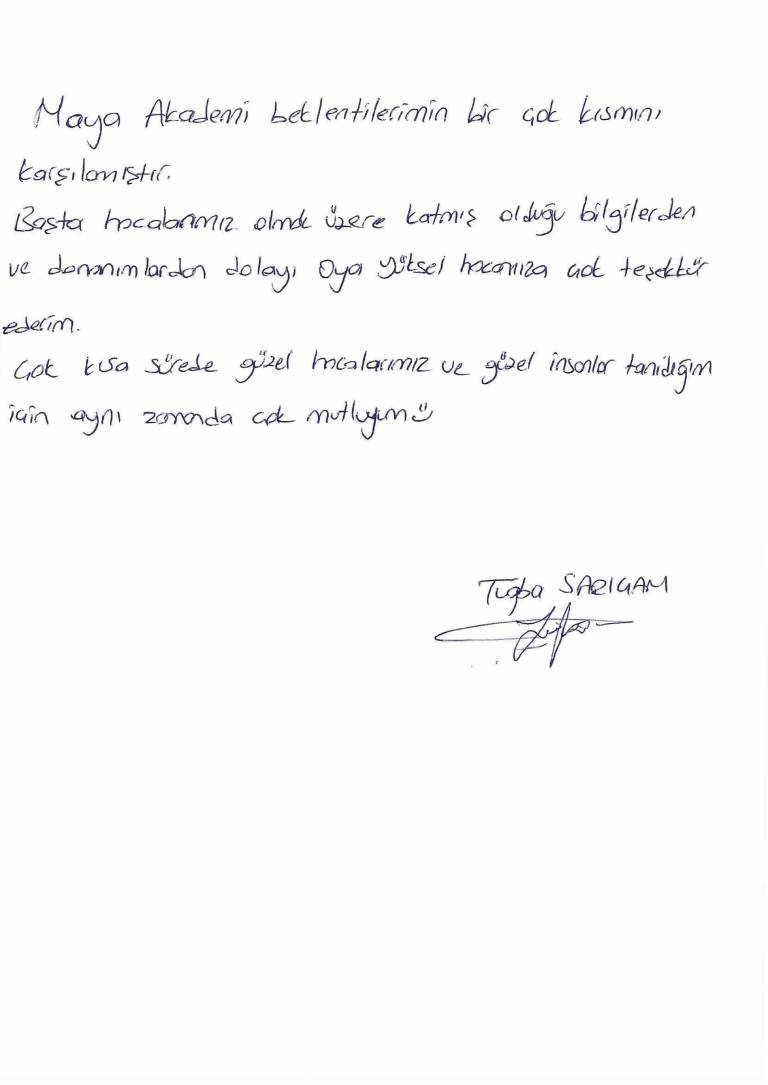 Maya Akademi beklentilerimin bir çok kısmını
karşılamıştır.
Başta hocalarımız olmak üzere katmış olduğu bilgilerden
ve donanımlardan dolayı Oya Yüksel hocamıza çok teşekkür
ederim.
Çok kısa sürede güzel hocalarımız ve güzel insanlar tanıdığım
için aynı zamanda çok mutluyum
Tuğba SARIÇAM